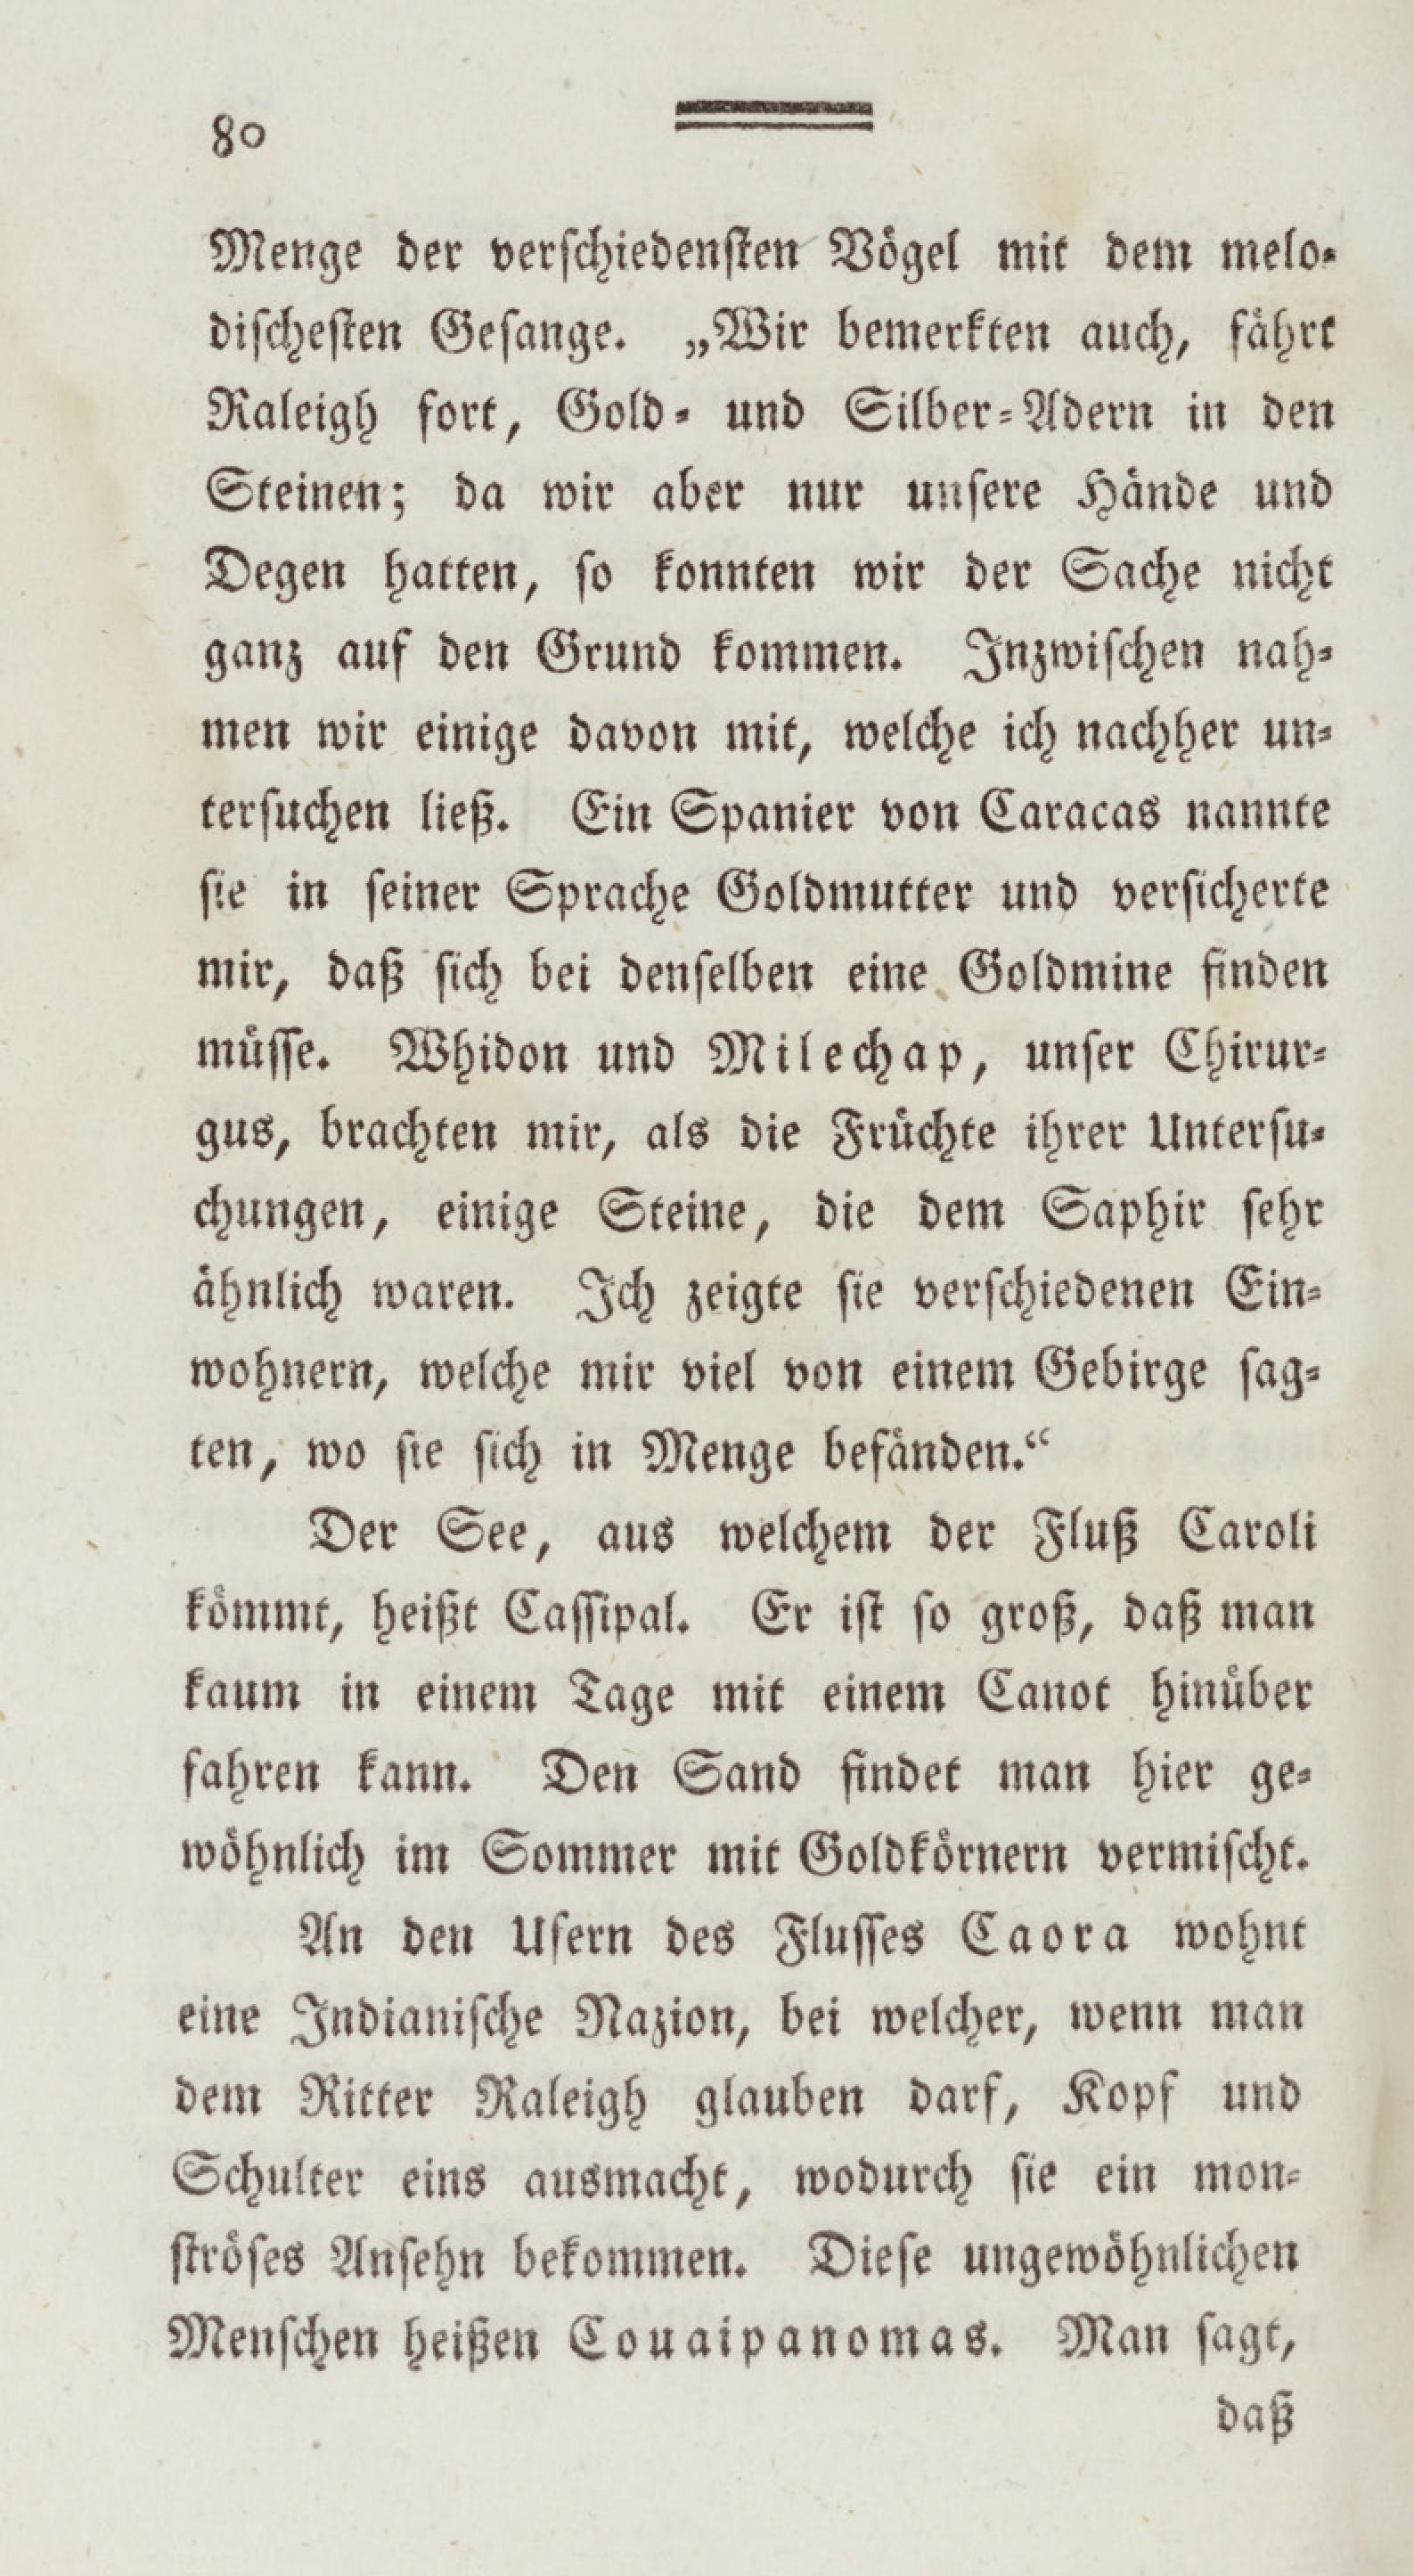 80
Menge der verschiedensten Vögel mit dem melo-
dischesten Gesange. „Wir bemerkten auch, fährt
Raleigh fort, Gold- und Silber-Adern in den
Steinen; da wir aber nur unsere Hände und
Degen hatten, so konnten wir der Sache nicht
ganz auf den Grund kommen. Inzwischen nah-
men wir einige davon mit, welche ich nachher un-
tersuchen ließ. Ein Spanier von Caracas nannte
sie in seiner Sprache Goldmutter und versicherte
mir, daß sich bei denselben eine Goldmine finden
müsse. Whidon und Milechap, unser Chirur-
gus, brachten mir, als die Früchte ihrer Untersu-
chungen, einige Steine, die dem Saphir sehr
ähnlich waren. Ich zeigte sie verschiedenen Ein-
wohnern, welche mir viel von einem Gebirge sag-
ten, wo sie sich in Menge befänden.“
Der See, aus welchem der Fluß Caroli
kömmt, heißt Cassipal. Er ist so groß, daß man
kaum in einem Tage mit einem Canot hinüber
fahren kann. Den Sand findet man hier ge-
wöhnlich im Sommer mit Goldkörnern vermischt.
An den Ufern des Flusses Caora wohnt
eine Indianische Nazion, bei welcher, wenn man
dem Ritter Raleigh glauben darf, Kopf und
Schulter eins ausmacht, wodurch sie ein mon-
ströses Ansehn bekommen. Diese ungewöhnlichen
Menschen heißen Couaipanomas. Man sagt,
daß